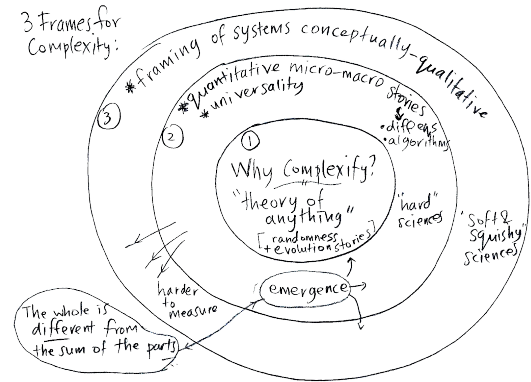 3 Frames for
Complexity:
*framing of systems conceptually-qualitative
③
*quantitative micro-macro stories
*universality
②
•diff eqns
•algorithms
①
Why Complexify?
"theory of
anything"
[randomness
+evolution stories]
"hard"
sciences
"Soft &
Squishy"
Sciences
harder
to
measure
emergence
The whole is
different from
the sum of the parts